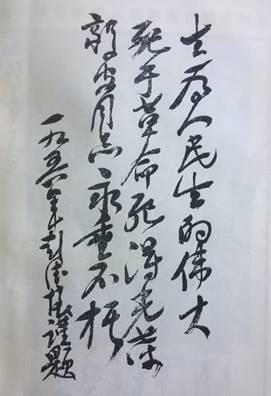 生为人民生的伟大
死于革命死得光荣
郭亮同志永垂不朽
一九五六年彭德怀谨题